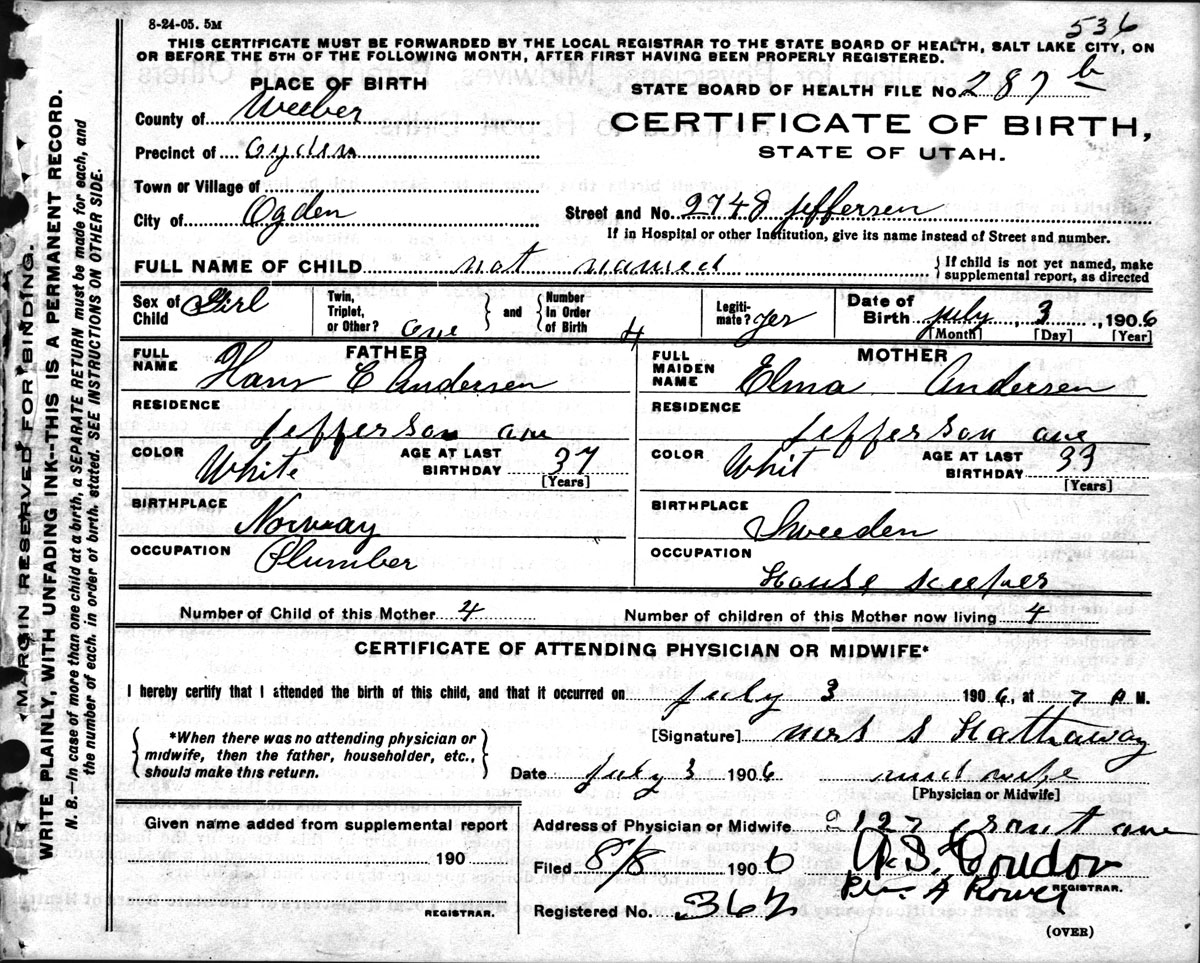 8-24-05. 5M
536
THIS CERTIFICATE MUST BE FORWARDED BY THE LOCAL REGISTRAR TO THE STATE BOARD OF HEALTH, SALT LAKE CITY, ON
OR BEFORE THE 5TH OF THE FOLLOWING MONTH, AFTER FIRST HAVING BEEN PROPERLY REGISTERED.
PLACE OF BIRTH
STATE BOARD OF HEALTH FILE No. 287 b
County of Weeber
CERTIFICATE OF BIRTH,
Precinct of Ogden
STATE OF UTAH.
Town or Village of
City of Ogden
Street and No. 2748 Jeffersen
If in Hospital or other Institution, give its name instead of Street and number.
FULL NAME OF CHILD not named
{ If child is not yet named, make
supplemental report, as directed
Sex of Child Girl
Twin, Triplet, or Other? one } and { Number In Order of Birth 4
Legitimate? yes
Date of Birth July 3, 1906
[Month] [Day] [Year]
FATHER
FULL NAME Hans C Andersen
MOTHER
FULL MAIDEN NAME Elma Andersen
RESIDENCE Jefferson ave
RESIDENCE Jefferson ave
COLOR White AGE AT LAST BIRTHDAY 37 [Years]
COLOR Whit AGE AT LAST BIRTHDAY 33 [Years]
BIRTHPLACE Norway
BIRTHPLACE Sweeden
OCCUPATION Plumber
OCCUPATION House keeper
Number of Child of this Mother 4
Number of children of this Mother now living 4
CERTIFICATE OF ATTENDING PHYSICIAN OR MIDWIFE*
I hereby certify that I attended the birth of this child, and that it occurred on July 3 1906, at 7 A M.
{ *When there was no attending physician or
midwife, then the father, householder, etc.,
should make this return. }
[Signature] Mrs S Hathaway
Date July 3 1906 midwife
[Physician or Midwife]
Given name added from supplemental report
190
REGISTRAR.
Address of Physician or Midwife 2127 grant ave
Filed 8/8 1906
REGISTRAR.
Registered No. 362
(OVER)
MARGIN RESERVED FOR BINDING.
WRITE PLAINLY, WITH UNFADING INK--THIS IS A PERMANENT RECORD.
N. B.—In case of more than one child at a birth, a SEPARATE RETURN must be made for each, and
the number of each, in order of birth, stated. SEE INSTRUCTIONS ON OTHER SIDE.